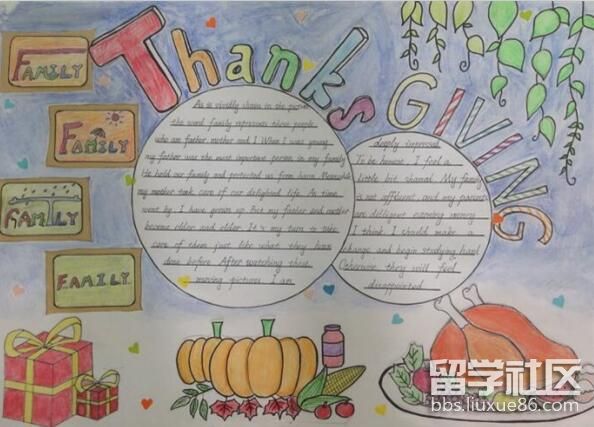 Thanks
GIVING
FAMILY
FAMILY
FAMILY
FAMILY
As is vividly shown in the picture
the word family expresses three people,
who are father mother and I. When I was young
my father was the most important person in my family
He hold our family and protected us from harm. Meanwhile
my mother took care of our delighted life. As time
went by. I have grown up. But my father and mother
become older and older. It is my turn to take
care of them just like what they have
done before. After watching these
moving pictures I am
deeply impressed
To be honest. I feel a
little bit shamed. My family
is not affluent and my parents
are delligent earning money
I think I should make a
change and begin studying hard
Otherwise they will feel
disappointed
留学社区
bbs.liuxue86.com